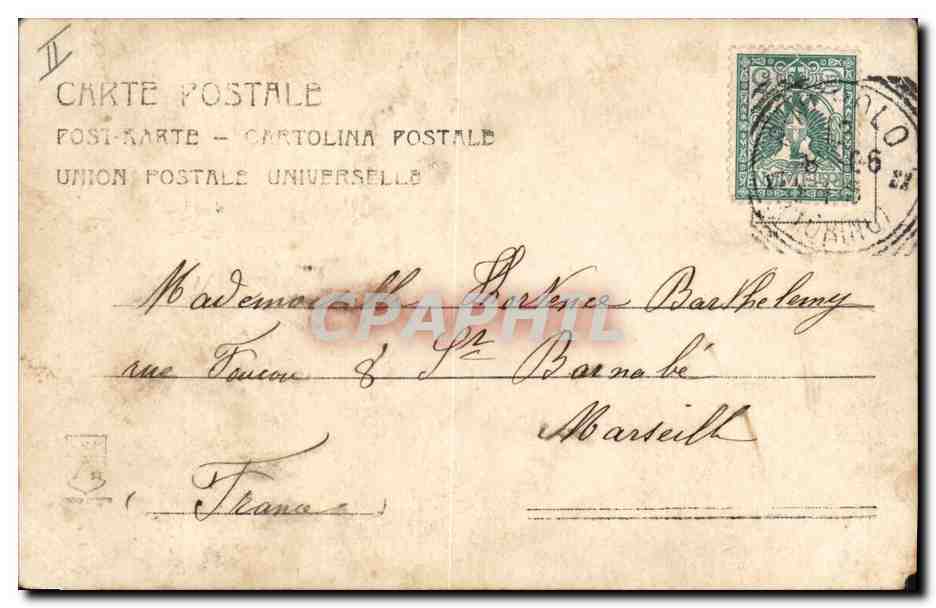 II
CARTE POSTALE
POST-KARTE – CARTOLINA POSTALE
UNION POSTALE UNIVERSELLE
OLO
(TORINO)
Mademoiselle Hortence Barthelemy
CPAPHIL
rue Foucou 8 St Barnabé
Marseille
(France)